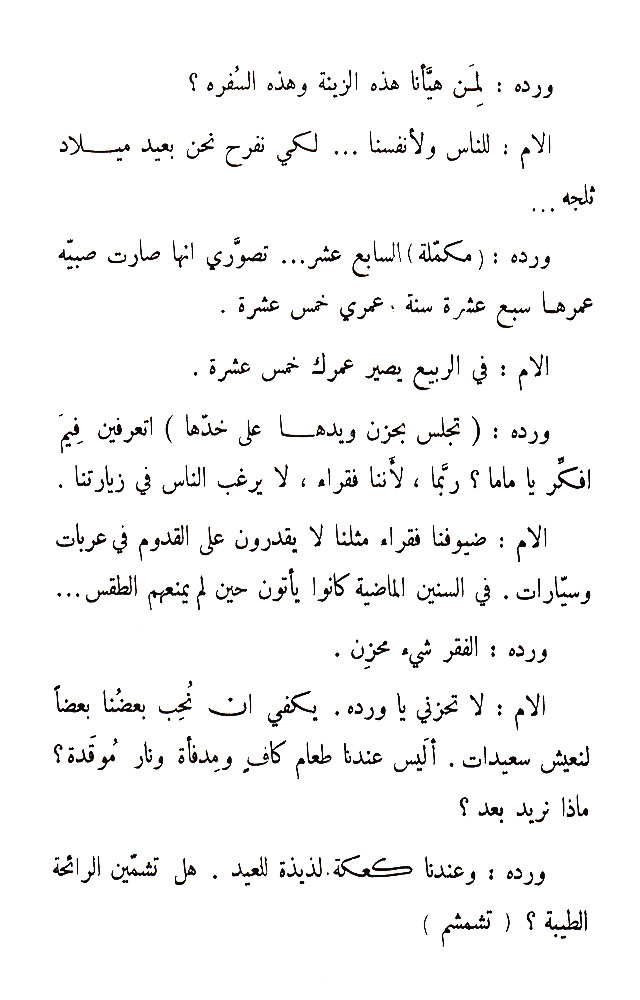 ورده : لِمَن هيَّأنا هذه الزينة وهذه السُفره ؟
الام : للناس ولأنفسنا ... لكي نفرح نحن بعيد ميـلاد
ثلجه ...
ورده : (مكمّلة) السابع عشر... تصوَّري انها صارت صبيّه
عمرهـا سبع عشرة سنة . عمري خمس عشرة .
الام : في الربيع يصير عمرك خمس عشرة .
ورده : ( تجلس بحزن ويدهـا على خدّها ) اتعرفين فِيمَ
افكِّر يا ماما ؟ ربَّما ، لأَننا فقراء ، لا يرغب الناس في زيارتنا .
الام : ضيوفنا فقراء مثلنا لا يقدرون على القدوم في عربات
وسيّارات . في السنين الماضية كانوا يأتون حين لم يمنعهم الطقس...
ورده : الفقر شيء محزِن .
الام : لا تحزني يا ورده . يكفي ان نُحِب بعضُنا بعضاً
لنعيش سعيدات . ألَيس عندنا طعام كافٍ ومِدفأة ونار مُوقَدة ؟
ماذا نريد بعد ؟
ورده : وعندنا كعكة لذيذة للعيد . هل تشمّين الرائحة
الطيبة ؟ ( تشمشم )